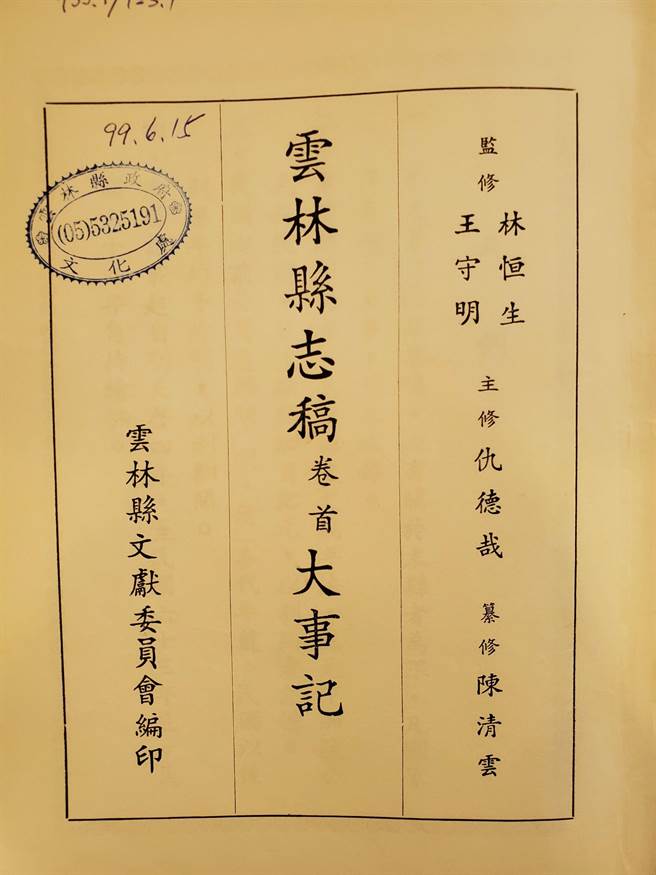 監修 林恒生
王守明
主修 仇德哉
纂修 陳清雲
雲林縣志稿 卷首 大事記
雲林縣文獻委員會編印
99.6.15
雲林縣政府
(05)5325191
文化處